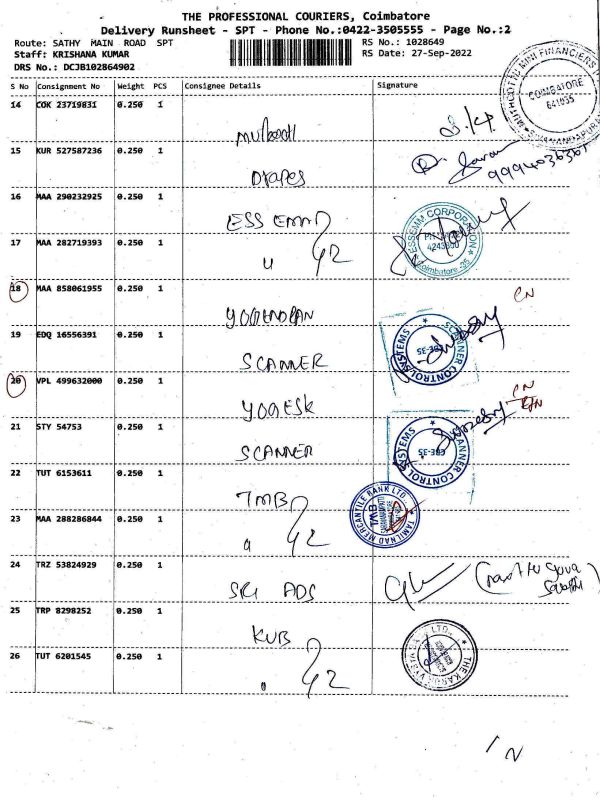 THE PROFESSIONAL COURIERS, Coimbatore
Delivery Runsheet - SPT - Phone No.:0422-3505555 - Page No.:2
Route: SATHY MAIN ROAD SPT
RS No.: 1028649
Staff: KRISHANA KUMAR
RS Date: 27-Sep-2022
DRS No.: DCJB102864902
S No Consignment No Weight PCS Consignee Details Signature
COIMBATORE
641035
14 COK 23719831 0.250 1
15 KUR 527587236 0.250 1 Drapes
9994036361
16 MAA 290232925 0.250 1 ESS EMM
ESSEMM CORPORATION
Coimbatore -35
17 MAA 282719393 0.250 1 " 42
18 MAA 858061955 0.250 1 YOGENDRAN
CN
19 EDQ 16556391 0.250 1 SCANNER
SCANNER CONTROL SYSTEMS
CBE-35
20 VPL 499632000 0.250 1 YOGESK
CN
21 STY 54753 0.250 1 SCANNER
SCANNER CONTROL SYSTEMS
CBE-35
22 TUT 6153611 0.250 1 TMB
TAMILNAD MERCANTILE BANK LTD.
TMB
23 MAA 288286844 0.250 1 " 42
24 TRZ 53824929 0.250 1 SRI ADS
25 TRP 8298252 0.250 1 KUB
26 TUT 6201545 0.250 1 " 42